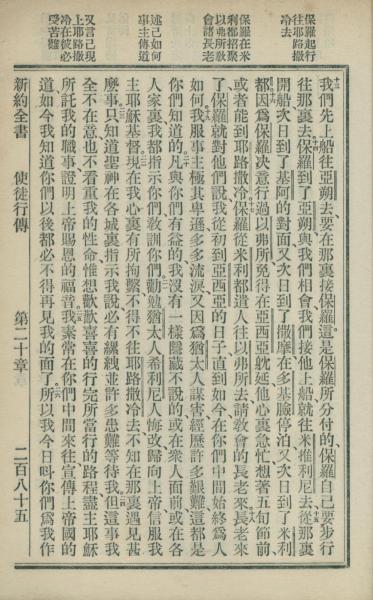 保羅起行
往耶路撒
冷去
保羅在米
利都招聚
以弗所教
會諸長老
述己如何
事主傳道
又言己現
上耶路撒
冷在彼必
受苦難
我們先上船往亞朔去要在那裏接保羅這是保羅所分付的保羅自己要步行
往那裏去保羅到了亞朔與我們相會我們接他上船就往米推利尼去從那裏
開船次日到了基阿的對面又次日到了撒摩在多基臉停泊又次日到了米利
都因爲保羅决意行過以弗所免得在亞西亞躭延他心裏急忙想著五旬節前
或者能到耶路撒冷保羅從米利都遣人往以弗所去請教會的長老來長老來
了保羅就對他們說我從初到亞西亞的日子直到如今在你們中間始終爲人
如何我服事主極其卑遜多多流淚又因爲猶太人謀害經歷許多艱難這都是
你們知道的凡與你們有益的我沒有一樣隱藏不說的或在衆人面前或在各
人家裏我都指示你們教訓你們勸勉猶太人希利尼人悔改歸向上帝信服我
主耶穌基督現在我心裏有所拘繫不得不往耶路撒冷去不知在那裏遇見甚
麼事只知道聖神在各城裏指示我說必有縲絏並許多患難等待我但這事我
全不在意也不看重我的性命惟想歡歡喜喜的行完所當行的路程盡主耶穌
所託我的職事證明上帝賜恩的福音我素常在你們中間來往宣傳上帝國的
道如今我知道你們以後都必不得再見我的面了所以我今日呌你們爲我作
新約全書 使徒行傳 第二十章 二百八十五